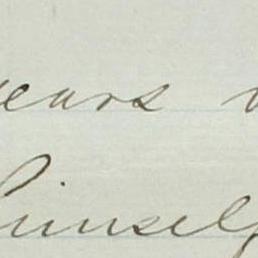 years
himself